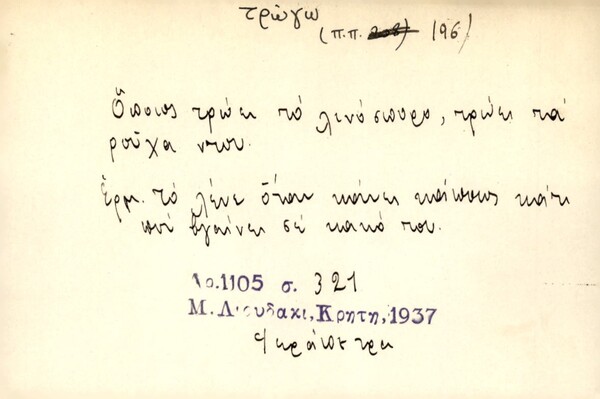 τρώγω
(π.π. 202) 196)
Ὅποιος τρώει τό λινόσπορο, τρώει τά
ροῦχα ντου.
Ἑρμ. τό λένε ὅταν κάνει κάποιος κάτι
πού βγαίνει σέ κακό του.
Αρ.1105 σ. 321
Μ. Λιουδακι, Κρητη, 1937
Ιεράπετρα